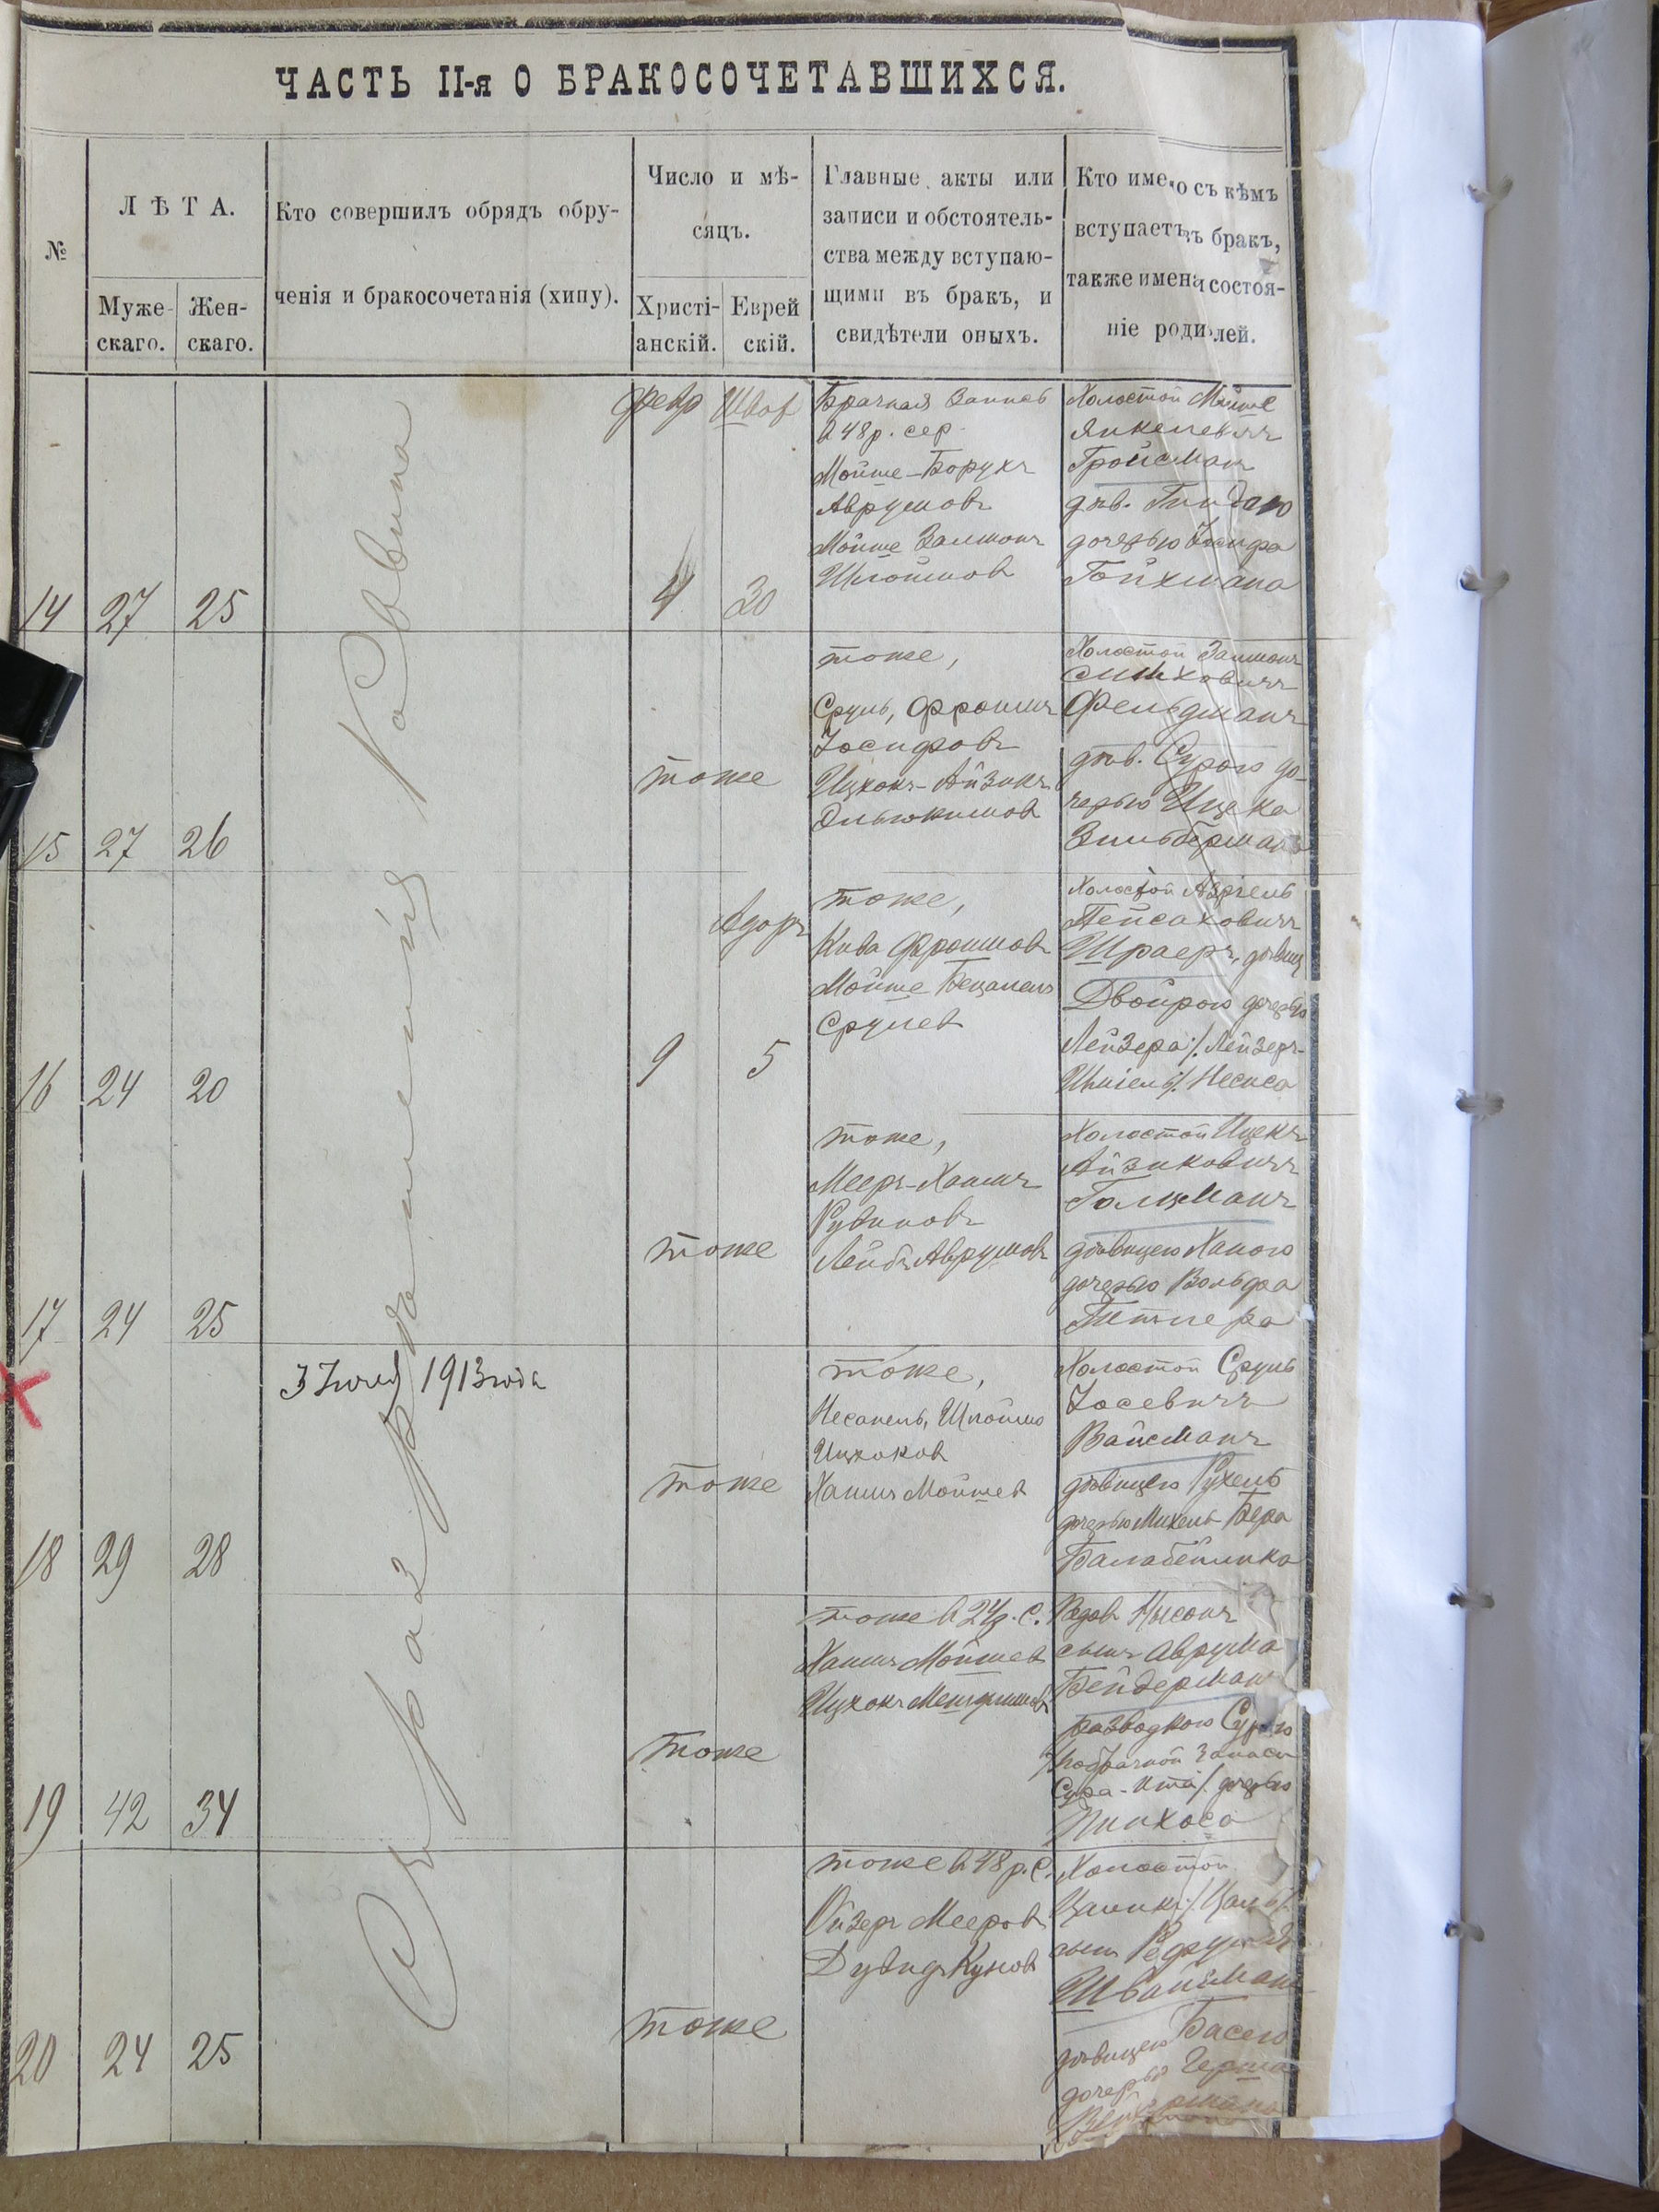 ЧАСТЬ II-я О БРАКОСОЧЕТАВШИХСЯ.
№
ЛѢТА.
Муже-
скаго.
Жен-
скаго.
Кто совершилъ обрядъ обру-
ченія и бракосочетанія (хипу).
Число и мѣ-
сяцъ.
Христі-
анскій.
Еврей
скій.
Главные акты или
записи и обстоятель-
ства между вступаю-
щими въ бракъ, и
свидѣтели оныхъ.
Кто имено съ кѣмъ
вступаетъ въ бракъ,
также имена и состоя-
ніе родилей.
Съ разрѣшенія Раввина
14
27
25
Февр
4
30
Брачная Запись
в 48 р. сер.
Мойше-Борухъ
Аврумовъ
Мойше Залмонъ
Шлоймов
Холостой Мойше
Янкелевичъ
Гройсманъ
дѣв.
дочерью Іосифа
Гойхмана
15
27
26
тоже
тоже,
Сруль, Фроимъ
Іосифовъ
Ицхокъ-Айзикъ
Эльюкимов
Холостой Залмонъ
Фельдманъ
дѣв. Сурою до-
черью Ицека
Зильбермана
16
24
20
Адаръ
9
5
тоже,
Кива Фроимов
Мойше Бецалель
Срулев
Холостой Азріель
Пейсаховичъ
Шраеръ, дѣвиц
Двойрою дочерью
Лейзера /. Лейзеръ-
Шміель/. Несиса
17
24
25
тоже
тоже,
Мееръ-Хаимъ
Рувиновъ
Лейбъ Аврумовъ
Холостой Ицекъ
Айзиковичъ
Голцманъ
дѣвицею Ханою
дочерью Вольфа
18
29
28
3 Іюля 1913 года
тоже
тоже,
Несанель, Шлоймо
Ицхоков
Хаимъ Мойшев
Холостой Сруль
Іосевичъ
Вайсманъ
дѣвицею Рухель
дочерью Михель Бера
19
42
34
тоже
тоже в 24 р. С.
Хаимъ Мойшев
Ицхокъ
Вдов Нысонъ
сынъ Аврума
Бейдерманъ
разводкою Сурою
/. по брачной Записи
Сура-Ита/. дочерью
Пинхоса
20
24
25
тоже
тоже в 48 р. С.
Ойзеръ Мееров
Дувидъ Кунов
Холостой
сынъ
Швайсман
дѣвицею Басею
дочерью Герша